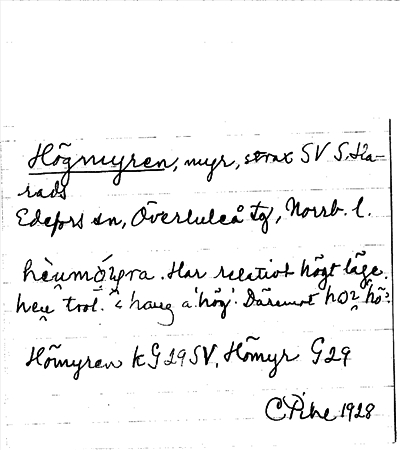 Högmyren, myr, strax SV S. Ha-
rads
Edefors sn, Överluleå tg, Norrb. l.
Har relativt högt läge.
trol. < haug a 'hög'. Däremot
Hömyren k G 29 SV, Hömyr G 29
C Pihl 1928